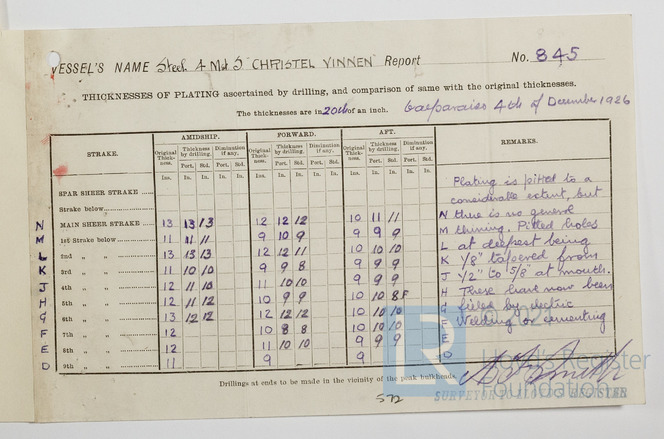 VESSEL'S NAME Steel 4 Mst S "CHRISTEL VINNEN" Report No. 845
THICKNESSES OF PLATING ascertained by drilling, and comparison of same with the original thicknesses.
The thicknesses are in 20ths of an inch. Valparaiso 4th of December 1926
STRAKE. AMIDSHIP. FORWARD. AFT. REMARKS.
Original Thickness. Thickness by drilling. Diminution if any. Original Thickness. Thickness by drilling. Diminution if any. Original Thickness. Thickness by drilling. Diminution if any.
Port. Std. Port. Std. Port. Std. Port. Std. Port. Std. Port. Std.
Ins. Ins. Ins. Ins. Ins. Ins. Ins. Ins. Ins. Ins. Ins. Ins. Ins. Ins. Ins.
SPAR SHEER STRAKE
Strake below
N MAIN SHEER STRAKE 13 13 13 12 12 12 10 11 11 N
M 1st Strake below 11 11 11 9 10 9 9 9 9 M
L 2nd " " 13 13 13 12 12 11 10 10 10 L
K 3rd " " 11 10 10 9 9 8 9 9 9 K
J 4th " " 12 11 10 11 10 10 9 9 9 J
H 5th " " 12 11 12 10 9 9 10 10 8F H
G 6th " " 13 12 12 12 12 12 10 10 10 G
F 7th " " 12 10 8 8 10 10 10 F
E 8th " " 12 11 10 10 9 9 9 E
D 9th " " 11 9 9 D
Plating is pitted to a
considerable extent, but
there is no general
thinning. Pitted holes
at deepest being
1/8" tapered from
1/2" to 5/8" at mouth.
These have now been
filled by electric
Welding or cementing
Drillings at ends to be made in the vicinity of the peak bulkheads.
572
SURVEYOR TO LLOYD'S REGISTER
LR
Lloyd's Register
Foundation